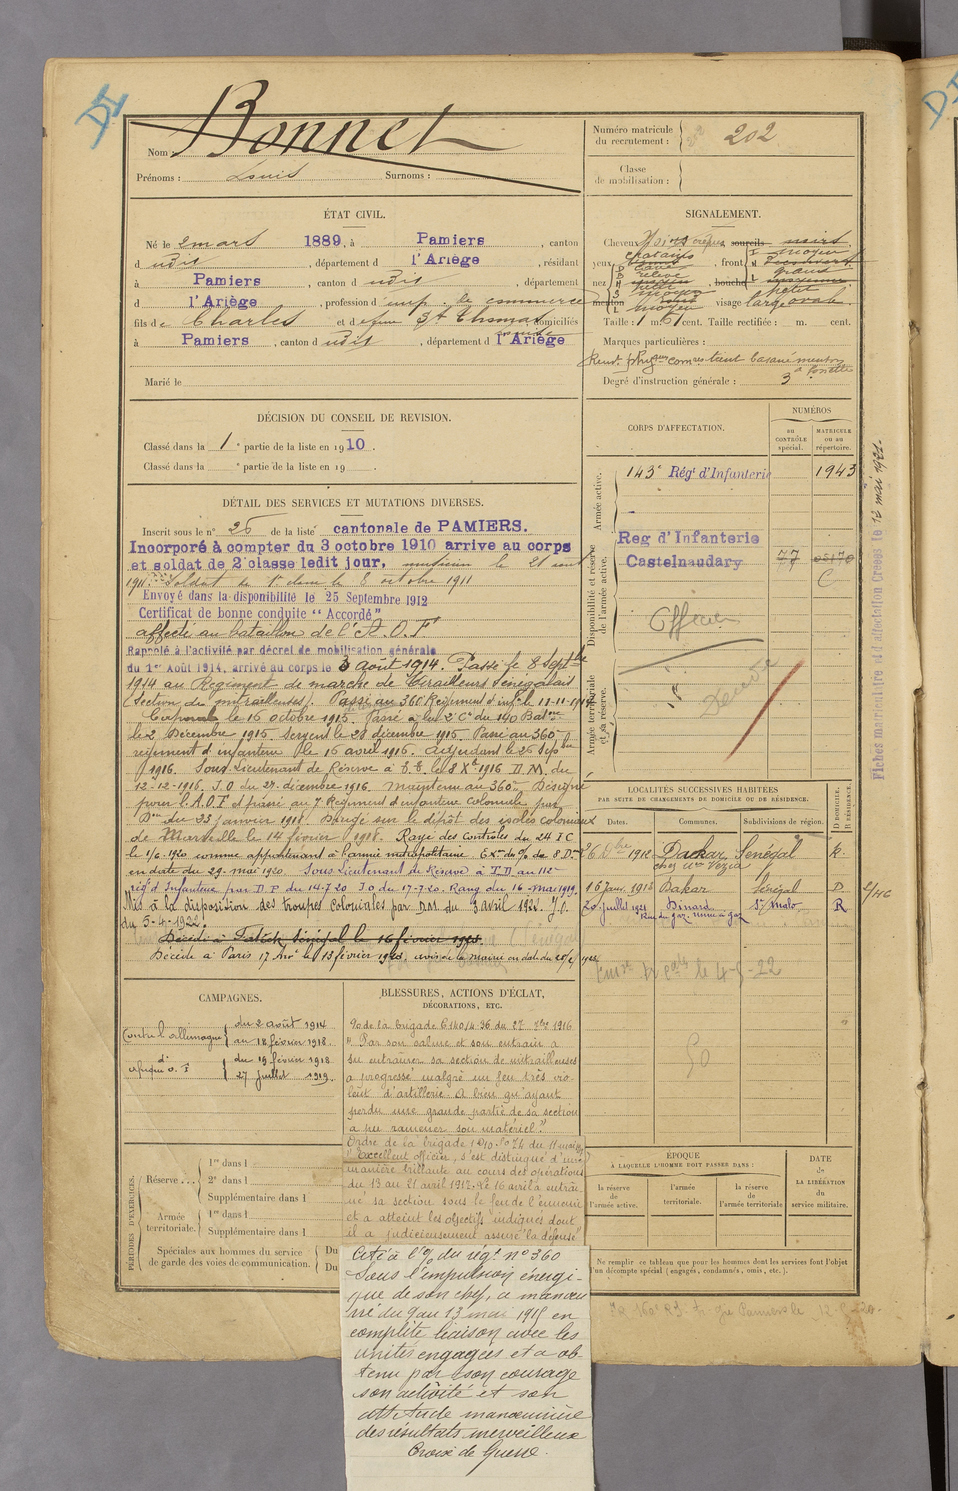 DI
Nom : Bonnet
Prénoms : Louis Surnoms :
Numéro matricule du recrutement : 202
Classe de mobilisation :
ÉTAT CIVIL.
Né le 2 mars 1889, à Pamiers, canton
d udit, département d l'Ariège, résidant
à Pamiers, canton d udit, département
d l'Ariège, profession d emp. de commerce
fils de Charles et d efune St Thomas, domiciliés
à Pamiers, canton d udit, département d l'Ariège
Marié le
SIGNALEMENT.
Cheveux noirs crépus sourcils noirs
yeux chatains, front moyen
nez bouche
menton visage large ovale
Taille : 1 m. 61 cent. Taille rectifiée : m. cent.
Marques particulières :
Degré d'instruction générale : 3
DÉCISION DU CONSEIL DE REVISION.
Classé dans la 1e partie de la liste en 1910.
Classé dans la e partie de la liste en 19 .
DÉTAIL DES SERVICES ET MUTATIONS DIVERSES.
Inscrit sous le n° 26 de la liste cantonale de PAMIERS.
Incorporé à compter du 3 octobre 1910 arrive au corps
et soldat de 2e classe ledit jour, musicien le 21 août
1911. Soldat de 1e classe le 8 octobre 1911
Envoyé dans la disponibilité le 25 Septembre 1912
Certificat de bonne conduite "Accordé"
affecté au bataillon de l'A.O.F
Rappelé à l'activité par décret de mobilisation générale
du 1er Août 1914, arrivé au corps le 3 août 1914. Passé le 8 Septbre
1914 au Régiment de marche de Tirailleurs Sénégalais
(Section de mitrailleuses). Passé au 360 Régiment d'inf. le 11-11-1914
Caporal le 16 octobre 1915. Passé à la 2e Cie du 140 Batne
le 2 Décembre 1915. Sergent le 28 décembre 1915. Passé au 360e
régiment d'infanterie le 16 avril 1916. Adjudant le 26 Sepbre
1916. Sous-Lieutenant de Réserve à T.T. le 8 Xbre 1916 D.M. du
12-12-1916. J.O du 27 décembre 1916. Maintenu au 360e Désigné
pour l'A.O.F et passé au 7 Régiment d'infanterie coloniale par
Don du 23 janvier 1918. Dirigé sur le dépôt des isolés coloniaux
de Marseille le 14 février 1918. Rayé des Contrôles du 24 I C
le 1/6-1920 comme appartenant à l'armée métropolitaine.
en date du 29 mai 1920. Sous Lieutenant de Réserve à T.D au 112e
régt d'Infanterie par D P du 14-7-20 J.O du 17-7-20. Rang du 16 Mai 1919.
Mis à la disposition des troupes coloniales par D.M. du 3 avril 1922. J.O.
du 5-4-1922.
Décédé à Fatick Sénégal le 16 février 1923.
Décédé à Paris 17e Arrt le 13 février 1923, avis de la mairie en date du
CORPS D'AFFECTATION.
NUMÉROS
AU CONTRÔLE SPÉCIAL.
MATRICULE OU AU RÉPERTOIRE.
Armée active.
143e Régt d'Infanterie 1943
Disponibilité et réserve de l'armée active.
Reg d'Infanterie
Castelnaudary 77
C
Officier
Armée territoriale et sa réserve.
Fiches matriculaire et d'affectation Creees le 12 mai 1921.
LOCALITÉS SUCCESSIVES HABITÉES
PAR SUITE DE CHANGEMENTS DE DOMICILE OU DE RÉSIDENCE.
Dates. Communes. Subdivisions de région. D DOMICILE. R RÉSIDENCE.
6 Dbre 1912 Dackar Sénégal R.
16 janv. 1913 Dakar Sénégal D
20 Juillet 1921 Dinard St Malo R
Rue du gaz usine à gaz
2/46
50
CAMPAGNES.
Contre l'Allemagne du 2 août 1914
au 18 février 1918.
d' Afrique O. F du 19 février 1918
27 juillet 1919.
BLESSURES, ACTIONS D'ÉCLAT,
DÉCORATIONS, ETC.
O de la brigade du 27 7bre 1916
"Par son calme et son entrain a
su entraîner sa section de mitrailleuses
a progressé malgré un feu très vio-
lent d'artillerie. A bien qu'ayant
perdu une grande partie de sa section
a pu ramener son matériel"
Ordre de la brigade n° 74 du 11 mai
"Excellent officier, s'est distingué d'une
manière brillante au cours des opérations
du 13 au 21 avril 1917. Le 16 avril a entraî-
né sa section sous le feu de l'ennemi
et a atteint les objectifs indiqués dont
il a judicieusement assuré la défense"
Cité à l'o/ du régt n° 360
Sous l'impulsion énergi-
que de son chef, a manœu
vré du 9 au 13 mai 1915 en
complète liaison avec les
unités engagées et a ob-
tenu par son courage
son activité et son
attitude
des résultats merveilleux
Croix de Guerre.
PÉRIODES D'EXERCICES.
Réserve ... 1re dans l
2e dans l
Supplémentaire dans l
Armée territoriale. 1re dans l
Supplémentaire dans l
Spéciales aux hommes du service
de garde des voies de communication.
Du
Du
ÉPOQUE
À LAQUELLE L'HOMME DOIT PASSER DANS :
la réserve de l'armée active.
l'armée territoriale.
la réserve de l'armée territoriale
DATE de LA LIBÉRATION du service militaire.
Ne remplir ce tableau que pour les hommes dont les services font l'objet
d'un décompte spécial (engagés, condamnés, omis, etc.).